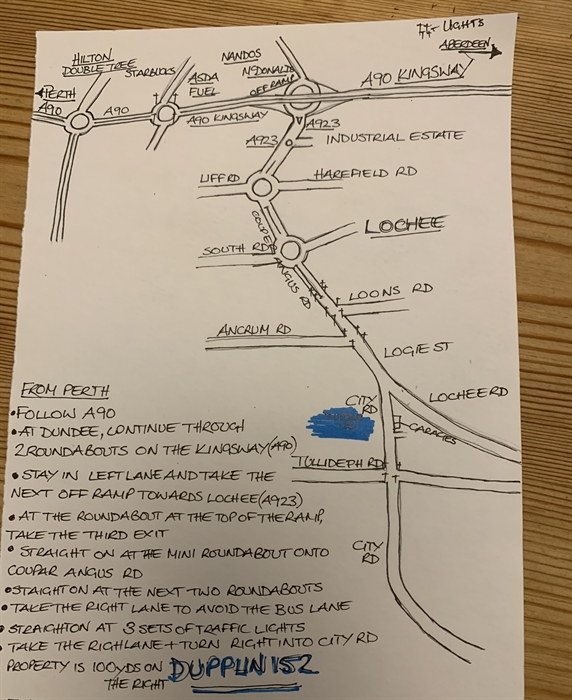 LIGHTS
ABERDEEN
HILTON
DOUBLE TREE
STARBUCKS
ASDA
FUEL
NANDOS
McDONALDS
OFF RAMP
A90 KINGSWAY
PERTH
A90
A90
A90 KINGSWAY
A923
A923
INDUSTRIAL ESTATE
LIFF RD
HAREFIELD RD
COUPAR ANGUS RD
LOCHEE
SOUTH RD
LOONS RD
ANCRUM RD
LOGIE ST
LOCHEE RD
CITY
RD
GARAGES
TULLIDEPH RD
CITY
RD
FROM PERTH
• FOLLOW A90
• AT DUNDEE, CONTINUE THROUGH
2 ROUNDABOUTS ON THE KINGSWAY (A90)
• STAY IN LEFT LANE AND TAKE THE
NEXT OFF RAMP TOWARDS LOCHEE (A923)
• AT THE ROUNDABOUT AT THE TOP OF THE RAMP,
TAKE THE THIRD EXIT
• STRAIGHT ON AT THE MINI ROUNDABOUT ONTO
COUPAR ANGUS RD
• STAIGHT ON AT THE NEXT TWO ROUNDABOUTS
• TAKE THE RIGHT LANE TO AVOID THE BUS LANE
• STRAIGHT ON AT 3 SETS OF TRAFFIC LIGHTS
• TAKE THE RIGH LANE + TURN RIGHT INTO CITY RD
PROPERTY IS 100YDS ON
THE RIGHT
DUPPLIN 152